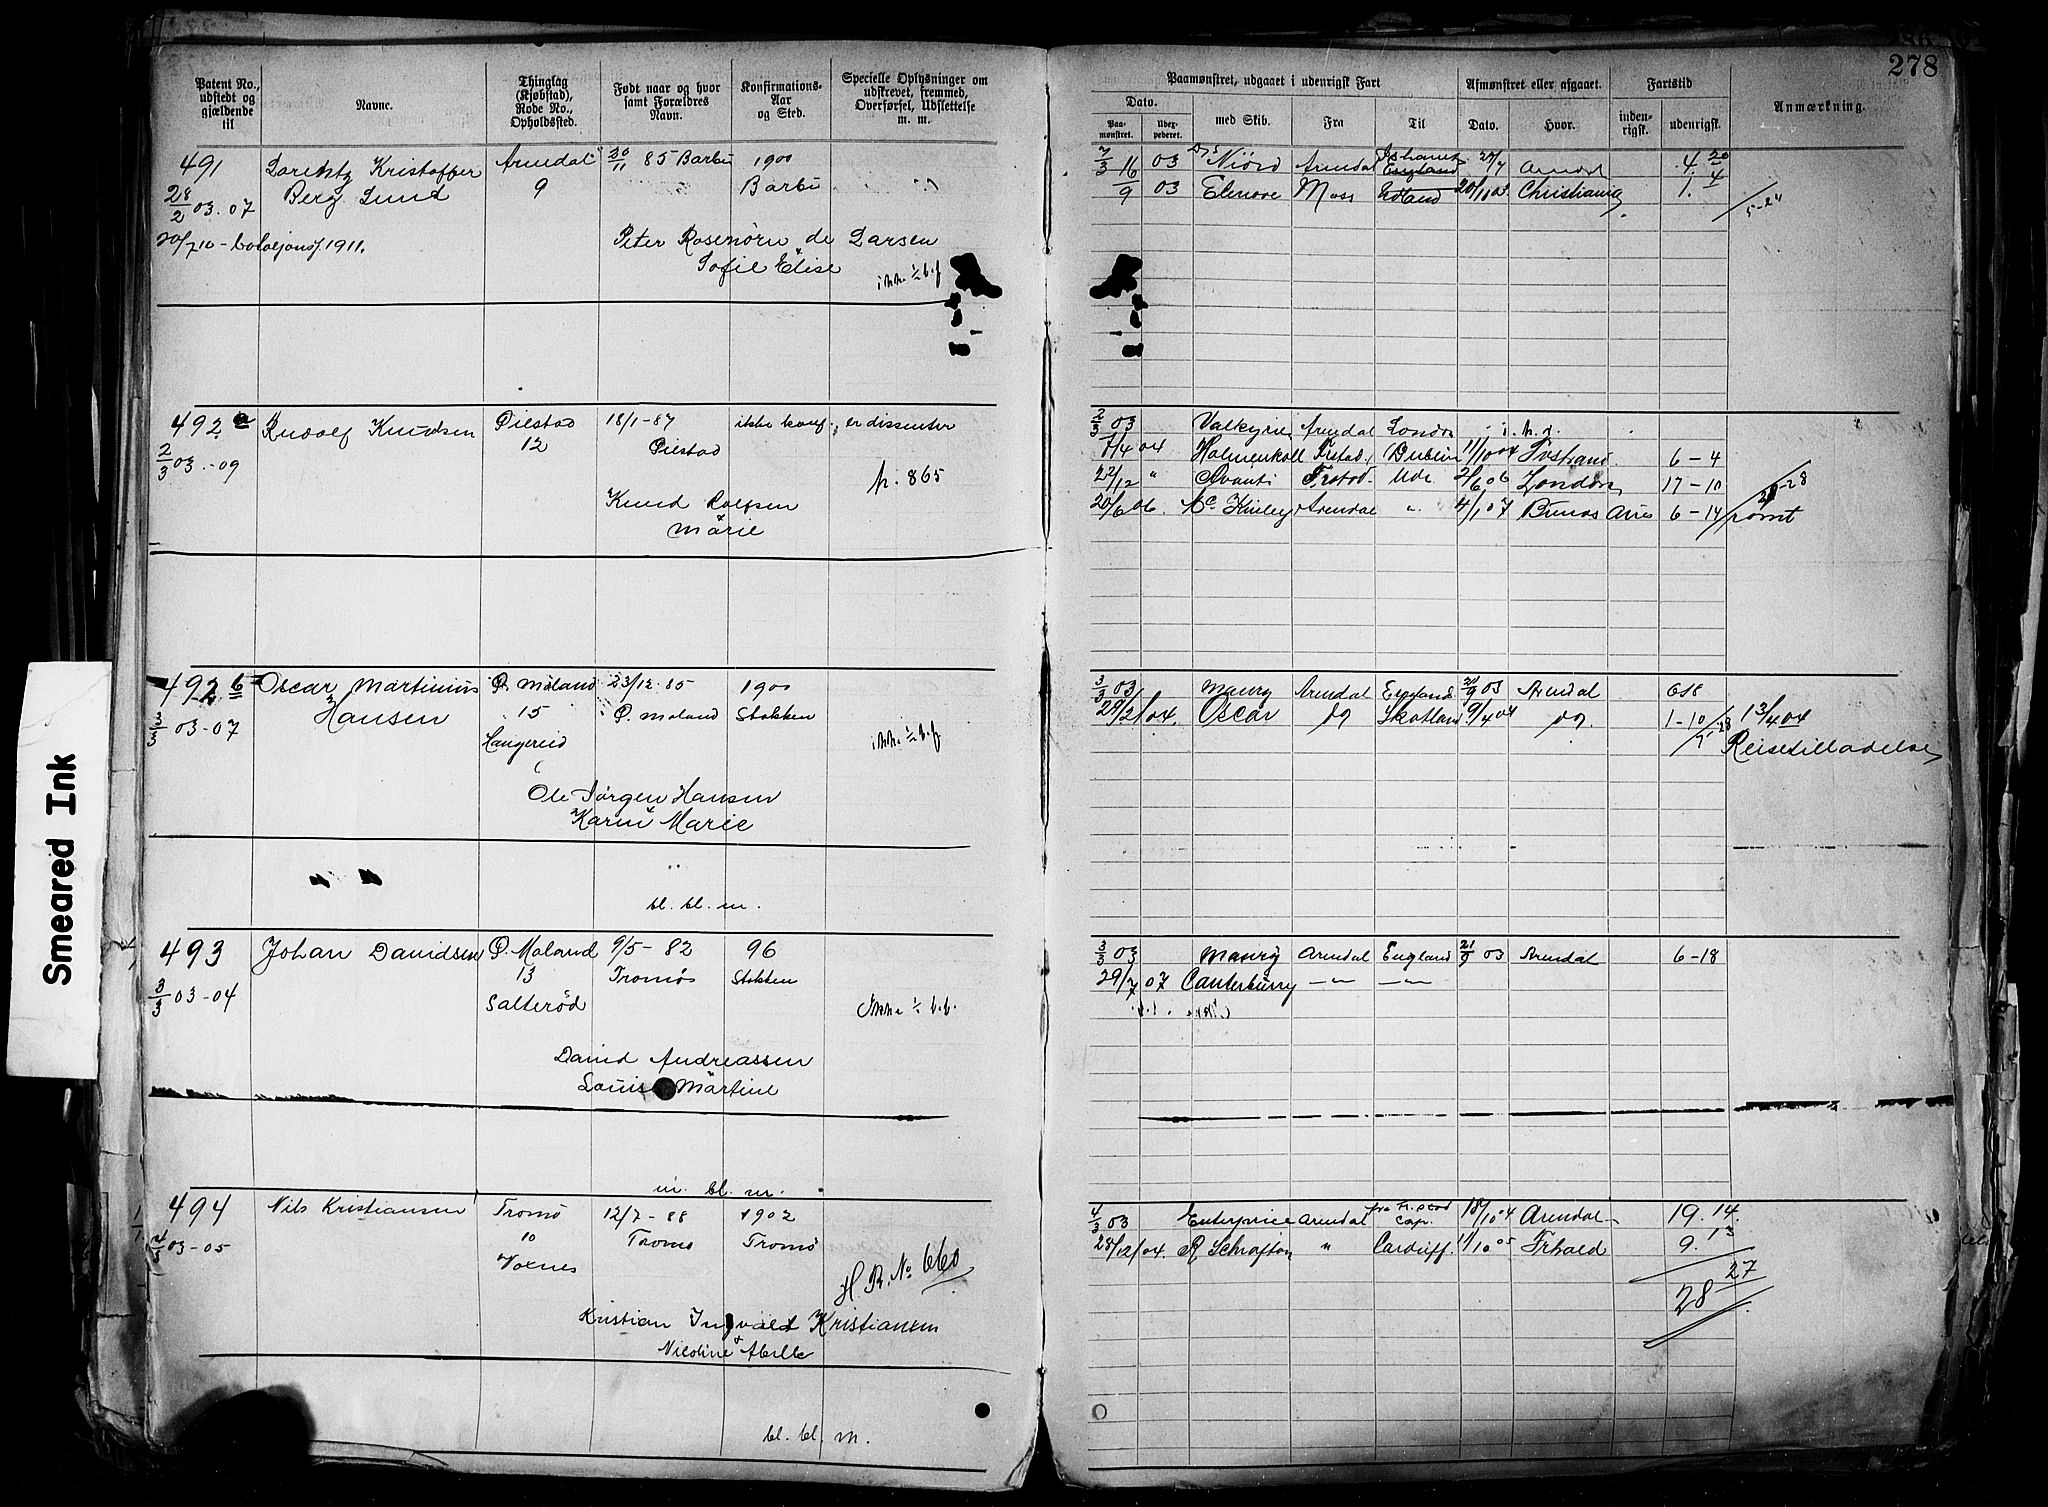 278
Patent No., udstedt og gjældende til
Navne.
Thinglag (Kjøbstad), Rode No., Opholdssted.
Født naar og hvor samt Forældres Navn.
Konfirmations-Aar og Sted.
Specielle Oplysninger om udskrevet, fremmed, Overførsel, Udslettelse m. m.
Paamønstret, udgaaet i udenrigsk Fart
Dato.
Paamønstret.
Udexpederet.
med Skib.
Fra
Til
Afmønstret eller afgaaet.
Dato.
Hvor.
Fartstid
indenrigsk.
udenrigsk.
Anmærkning.
491 Lorentz Kristoffer Arendal 20/11 85 Barbu 1900
28/2 03.07 Berg Lund 9 Barbu
Peter Rosenørn de Larsen
Sofie Elise
7/3 16 03 D/S Niord Arendal England 27/7 Arendal 4. 20
9 03 Elenore Moss Østland 20/11 03 Christiania 1. 4
492 a Rudolf Knudsen Øiestad 18/1-87 ikke konf., er dissenter
2/3 03.-09 12 Øiestad
h. 865
Knud Rolfsen
Marie
2/3 03 Valkyrie Arendal London
7/4 04 Holmenkoll Frstad Dublin 11/10 04 Tvstrand 6-4
22/12 " Avanti Frstad. Ude 2/6 06 London 17-10
20/6 06. Mc Kinley Arendal " 4/1 07 Buenos Aires 6-14 rømt
492 b Oscar Martinius Ø. Moland 23/12-85 1900
3/3 03-07 Hansen 15 Ø. Moland Stokken
Haugereid
Ole Jørgen Hansen
Karin Marie
3/3 03 Maury Arendal England 21/9 03 Arendal 6 18
29/2/04. Oscar do Skotland 9/4 04 do. 1-10 13/4 04
Reisetilladelse
bl. bl. m.
493 Johan Davidsen Ø. Moland 9/5-82 96
3/3 03-04 13 Tromøs Stokken
Salterød
Ikke 1/2 b.b.
David Andreassen
Louise Martine
3/3 03 Maury Arendal England 21/9 03 Arendal 6-18
29/7 07 Canterburry -"- -"-
m. bl. m.
494 Nils Kristiansen Tromø 12/7-88 1902
4/3 03-05 10 Tromø Tromø
Voxnes
H. R. No 660
Kristian Ingvald Kristiansen
Nicoline Abelle
4/3 03 Enterprise Arendal Cap. 18/10 04 Arendal 19. 14.
28/12/04. R Schrafton " Cardiff. 11/10 05 Frhald 9. 13
28 27
bl. bl. m.
Smeared Ink